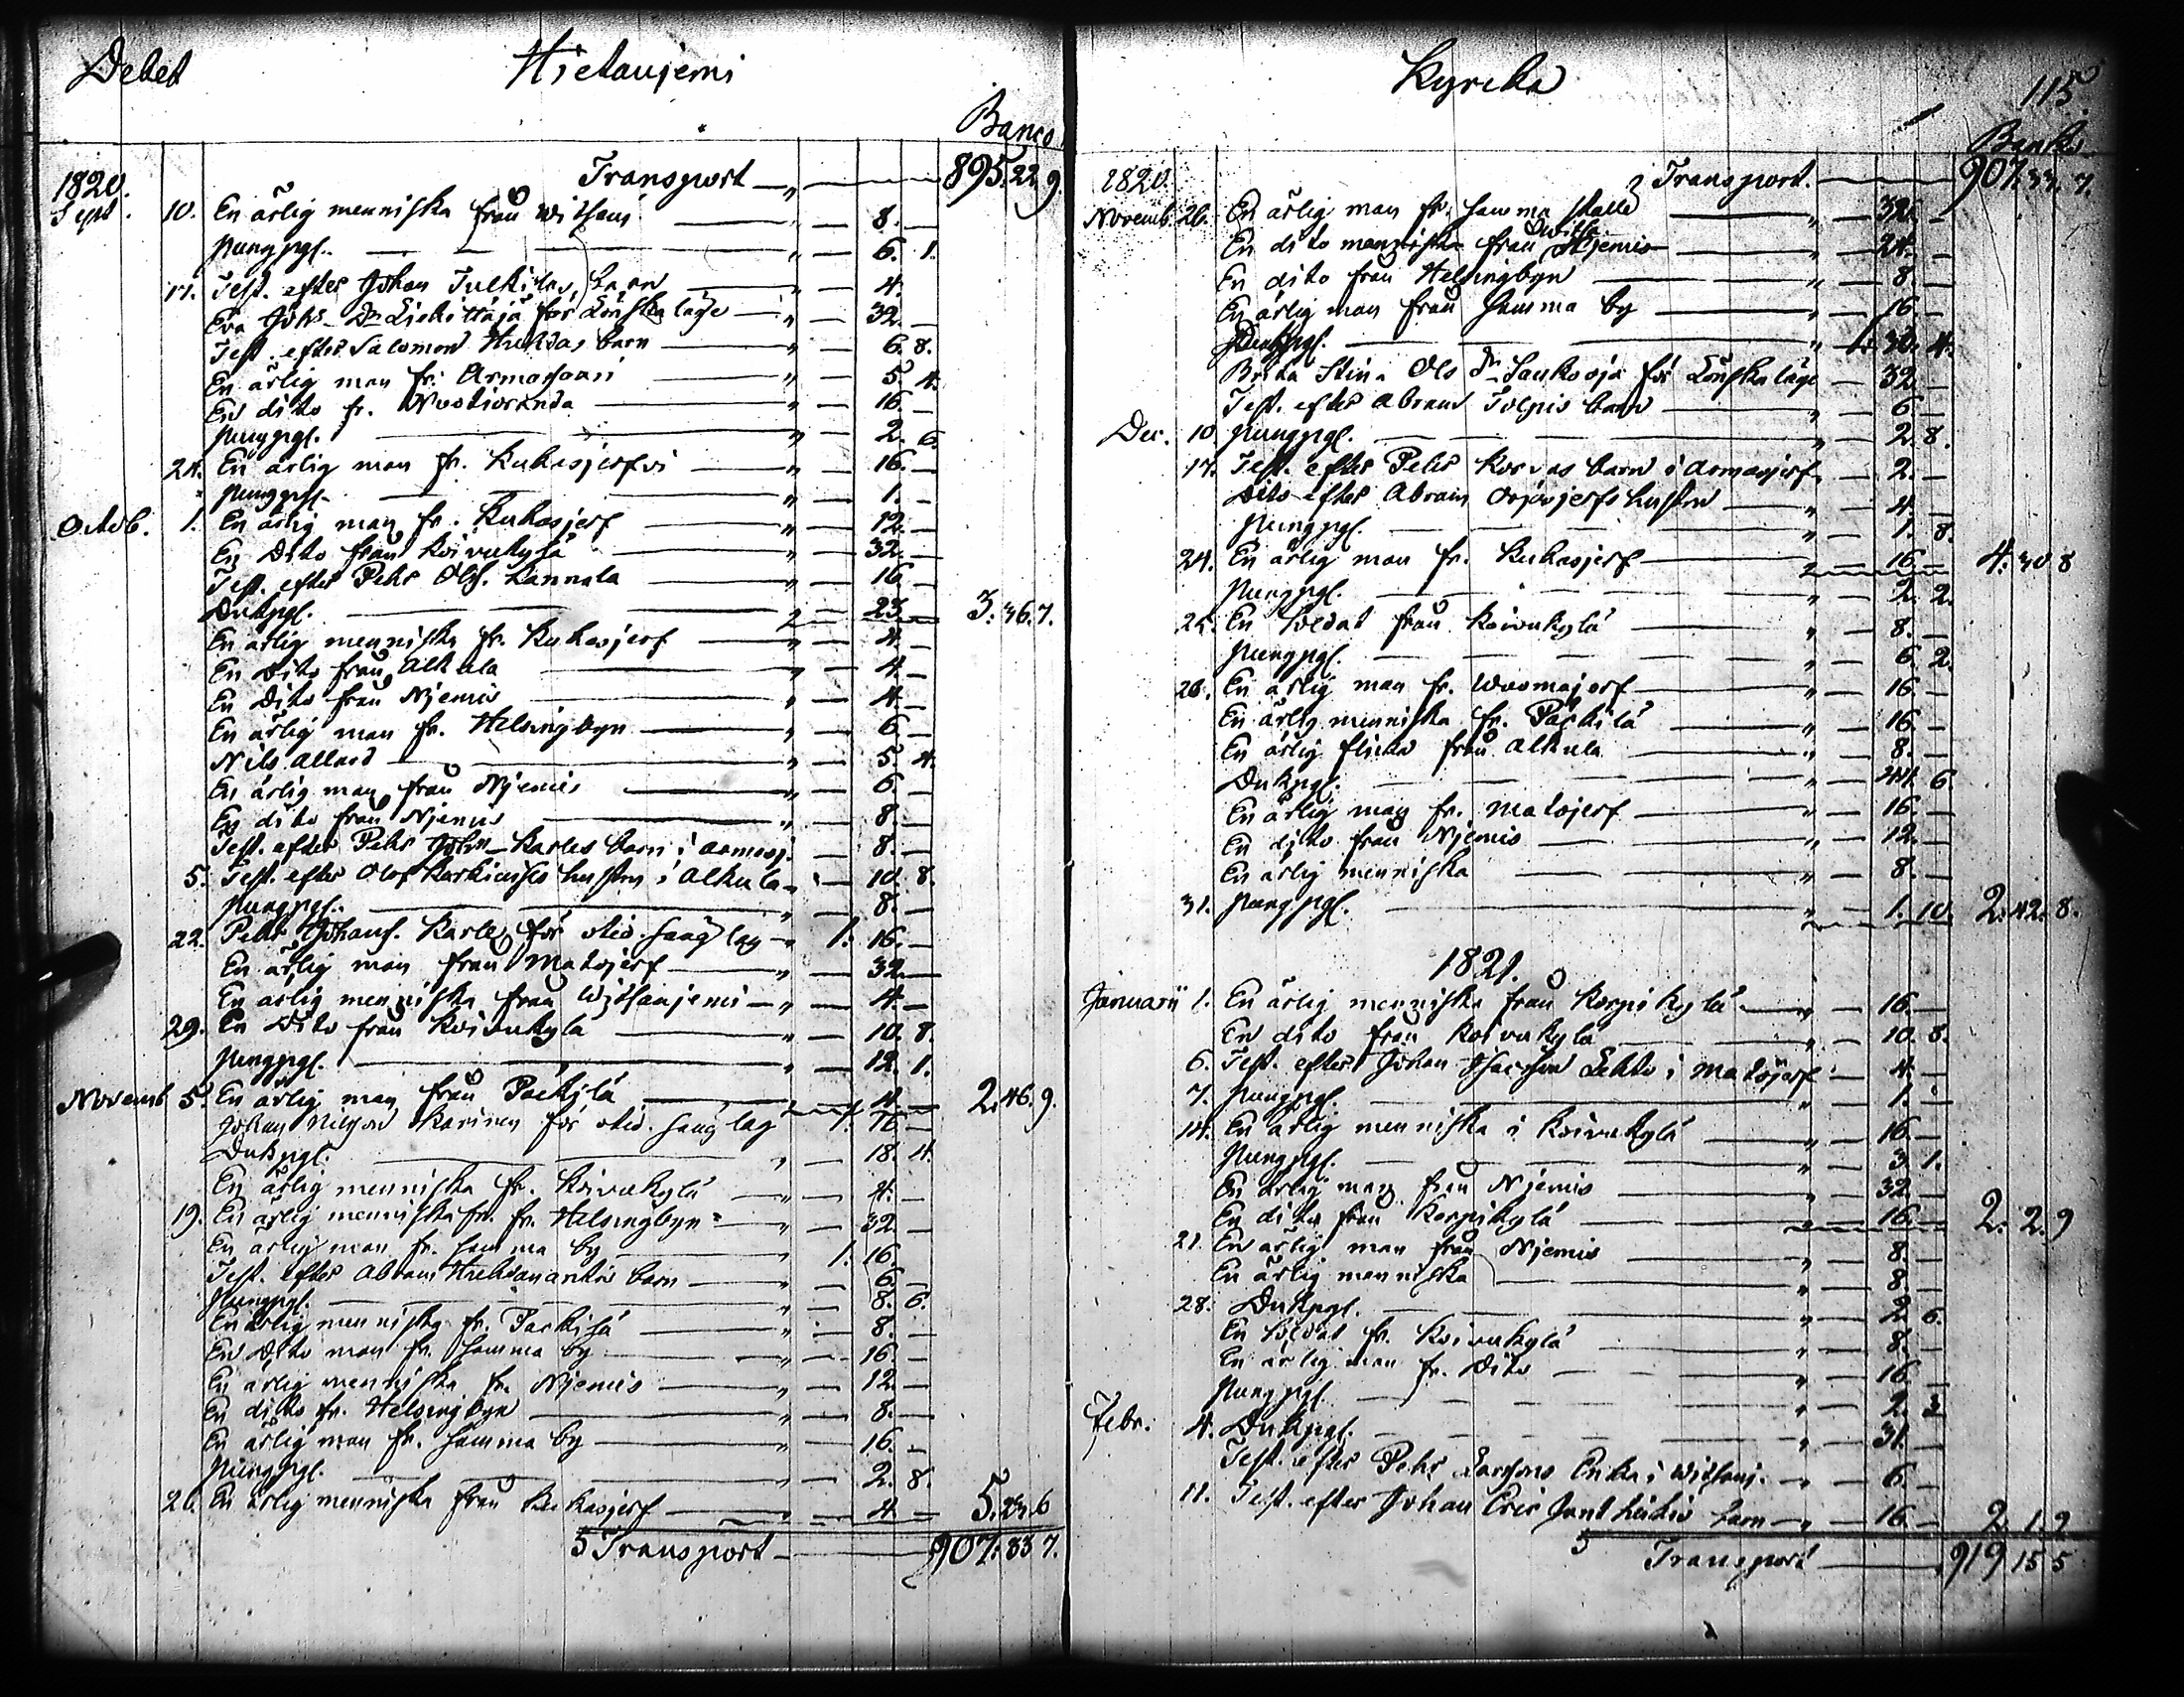 Debet Hietaniemi
Banco
1820. Transport — " — 895. 22. 9.
Sept. 10. En ärlig menniska från Witsani — " — 8. —
pungpgr. — " — 6. 1.
17. Test. efter Johan barn — " — 4. —
Eva Johs Dr för Lönskaläge — " — 32. —
Test. efter Salomon barn — " — 6. 8.
En ärlig man fr. Armassaari — " — 5. 4.
En dito fr. Wuotioranda — " — 16. —
pungpgr. — " — 2. 6.
24. En ärlig man fr. Kukasjerfvi — " — 16. —
pungpgr. — " — 1. —
Octob. 1. En ärlig man fr. Kukasjerf — " — 12. —
En Dito från Koivukylä — " — 32. —
Test. efter Pehr Olss. Kannala — " — 16. —
Dukpgr. — 23. — 3. 36. 7.
En ärlig menniska fr. Kukasjerf — " — 4. —
En Dito från Alkula — " — 4. —
En Dito från Njemis — " — 4. —
En ärlig man fr. Helsingbyn — " — 6. —
Nils Allard — " — 5. 4.
En ärlig man från Njemis — " — 6. —
En dito från Njemis — " — 8. —
Test. efter Pehr Johns Karles barn i armasj. — 8. —
5. Test. efter Olof hustru i Alkula — " — 10. 8.
pungpgr. — " — 8. —
22. Pehr Johanss. Karle för otid. säng lag — " 1. 16. —
En ärlig man från Matojerf — " — 32. —
En ärlig menniska från Witsanjemi — " — 4. —
29. En Dito från Koivukyla — " — 10. 8.
pungpgr. — " — 12. 1.
Novemb 5. En ärlig man från Päckilä — 4. — 2. 46. 9.
Johan Nilsson Karinen för otid. säng lag 1. 16 —
Dukpgr. — " — 18. 4.
En ärlig menniska fr. Koivukylä — " — 4. —
19. En ärlig menniska fr. fr. Helsingbyn — " — 32 —
En ärlig man fr. samma by — " 1. 16. —
Test. efter Abram barn — " — 6. —
pungpgr. — " — 8. 6.
En ärlig menniska fr. Päckilä — " — 8. —
En Dito man fr. samma by — " — 16. —
En ärlig menniska fr. Njemis — " — 12. —
En dito fr. Helsingbyn — " — 8. —
En ärlig man fr. samma by — " — 16. —
pungpgr. — " — 2. 8.
26. En ärlig menniska från Kukasjerf — 4. — 5. 23. 6
5 Transport — 907. 33 7.
Kyrcka 115
Banko
1820. Transport. — 907. 33. 7.
Novemb. 26. En ärlig man fr. samma ställe — " — 32. —
En dito menniska från Njemis — " — 24. —
En dito från Helsingbyn — " — 8. —
En ärlig man från samma by — " — 16. —
Dukpgr. — " 1. 30. 4.
Brita Stina Ols Dr för Lönskaläge — 32. —
Test. efter Abram Tolpis barn — " — 6. —
Dec. 10. pungpgr. — " — 2. 8.
17. Test. efter Pehr Korvas barn i armasjerf — 2. —
Dito efter Abram hustru — " — 4. —
pungpgr. — " — 1. 8.
24. En ärlig man fr. Kukasjerf — 16. — 4. 30 8
pungpgr. — " — 2. 2.
25. En Soldat från Koivukylä — " — 8. —
pungpgr. — " — 6. 2.
26. En ärlig man fr. Wuomajerf — " — 16. —
En ärlig menniska fr. Päckilä — " — 16. —
En ärlig flicka från Alkula — " — 8. —
Dukpgr. — " — 44. 6.
En ärlig man fr. Matojerf — " — 16. —
En dito från Njemis — " — 12. —
En ärlig menniska — " — 8. —
31. pungpgr. — 1. 10. 2. 42. 8.
1821.
Januarii 1. En ärlig menniska från Korpikylä — " — 16. —
En dito från Koivukylä — " — 10. 8.
6. Test. efter Johan i Matojerf — 4. —
7. pungpgr. — " — 1. —
14. En ärlig menniska i Koivukylä — " — 16. —
pungpgr. — " — 3. 1.
En ärlig man från Njemis — " — 32. —
En dito från Korpikylä — 16. — 2. 2. 9
21. En ärlig man från Njemis — " — 8. —
En ärlig menniska — " — 8. —
28. Dukpgr. — " — 2 6.
En Soldat fr. Koivukylä — " — 8. —
En ärlig man fr. Dito — " — 16. —
pungpgr. — " — 2. 3
Febr. 4. Dukpgr. — " — 31. —
Test. efter Pehr Larssons Enka i Witsanj. — " — 6. —
11. Test. efter Johan Eric barn — " — 16. — 2. 1. 2
5 Transport — 919 15 5